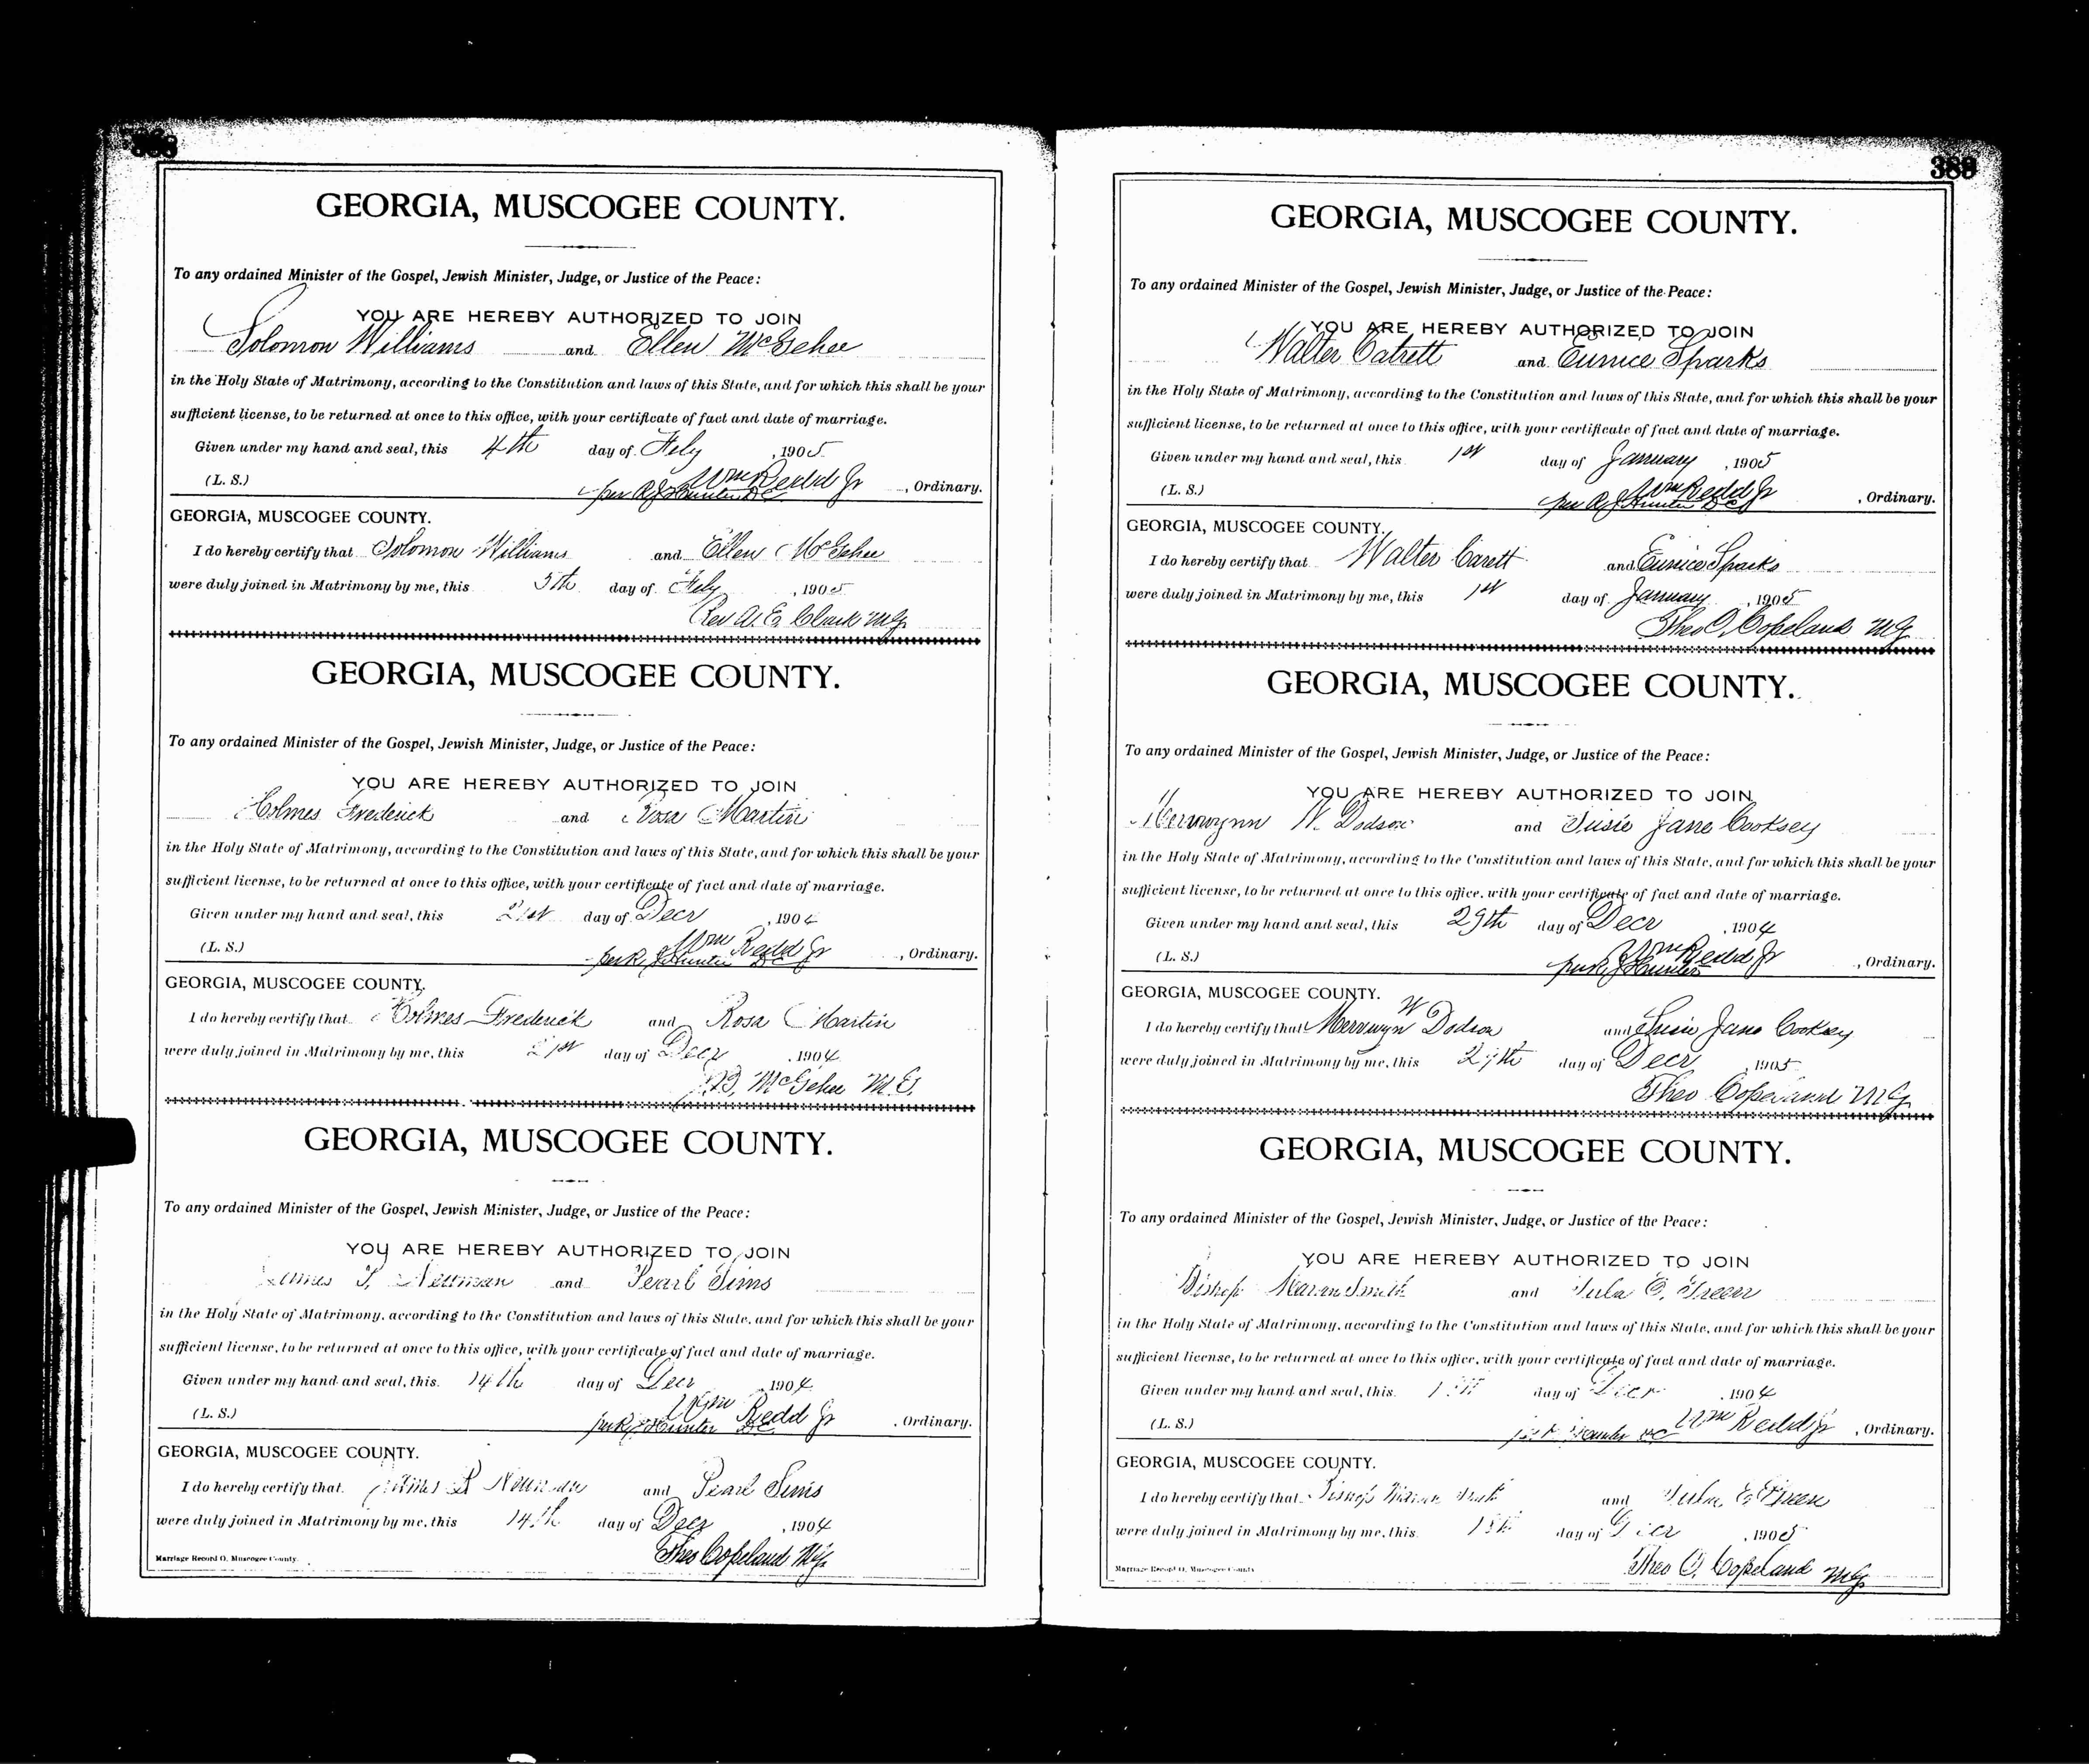 GEORGIA, MUSCOGEE COUNTY.
To any ordained Minister of the Gospel, Jewish Minister, Judge, or Justice of the Peace:
YOU ARE HEREBY AUTHORIZED TO JOIN
Solomon Williams and Ellen McGehee
in the Holy State of Matrimony, according to the Constitution and laws of this State, and for which this shall be your
sufficient license, to be returned at once to this office, with your certificate of fact and date of marriage.
Given under my hand and seal, this 4th day of Feby, 1905
(L. S.) Wm Redd Jr, Ordinary.
per R J Hunter D C
GEORGIA, MUSCOGEE COUNTY.
I do hereby certify that Solomon Williams and Ellen McGehee
were duly joined in Matrimony by me, this 5th day of Feby, 1905
Rev A. E. Clark MG
GEORGIA, MUSCOGEE COUNTY.
To any ordained Minister of the Gospel, Jewish Minister, Judge, or Justice of the Peace:
YOU ARE HEREBY AUTHORIZED TO JOIN
Holmes Frederick and Rosa Martin
in the Holy State of Matrimony, according to the Constitution and laws of this State, and for which this shall be your
sufficient license, to be returned at once to this office, with your certificate of fact and date of marriage.
Given under my hand and seal, this 21st day of Decr, 1904
(L. S.) Wm Redd Jr, Ordinary.
per R J Hunter D C
GEORGIA, MUSCOGEE COUNTY.
I do hereby certify that Holmes Frederick and Rosa Martin
were duly joined in Matrimony by me, this 21st day of Decr, 1904
McGehee M.G.
GEORGIA, MUSCOGEE COUNTY.
To any ordained Minister of the Gospel, Jewish Minister, Judge, or Justice of the Peace:
YOU ARE HEREBY AUTHORIZED TO JOIN
James Newman and Pearl Sims
in the Holy State of Matrimony, according to the Constitution and laws of this State, and for which this shall be your
sufficient license, to be returned at once to this office, with your certificate of fact and date of marriage.
Given under my hand and seal, this 14th day of Decr, 1904
(L. S.) Wm Redd Jr, Ordinary.
per R J Hunter D C
GEORGIA, MUSCOGEE COUNTY.
I do hereby certify that James Newman and Pearl Sims
were duly joined in Matrimony by me, this 14th day of Decr, 1904
Theo Copeland MG
Marriage Record O, Muscogee County.
389
GEORGIA, MUSCOGEE COUNTY.
To any ordained Minister of the Gospel, Jewish Minister, Judge, or Justice of the Peace:
YOU ARE HEREBY AUTHORIZED TO JOIN
Walter Catrett and Eunice Sparks
in the Holy State of Matrimony, according to the Constitution and laws of this State, and for which this shall be your
sufficient license, to be returned at once to this office, with your certificate of fact and date of marriage.
Given under my hand and seal, this 1st day of January, 1905
(L. S.) Wm Redd Jr, Ordinary.
per R J Hunter D C
GEORGIA, MUSCOGEE COUNTY.
I do hereby certify that Walter Carett and Eunice Sparks
were duly joined in Matrimony by me, this 1st day of January, 1905
Theo O, Copeland MG
GEORGIA, MUSCOGEE COUNTY.
To any ordained Minister of the Gospel, Jewish Minister, Judge, or Justice of the Peace:
YOU ARE HEREBY AUTHORIZED TO JOIN
Merwynn W. Dodson and Susie Jane Cooksey
in the Holy State of Matrimony, according to the Constitution and laws of this State, and for which this shall be your
sufficient license, to be returned at once to this office, with your certificate of fact and date of marriage.
Given under my hand and seal, this 29th day of Decr, 1904
(L. S.) Wm Redd Jr, Ordinary.
per R J Hunter
GEORGIA, MUSCOGEE COUNTY.
I do hereby certify that Merwyn W Dodson and Susie Jane Cooksey
were duly joined in Matrimony by me, this 29th day of Decr, 1905
Theo Copeland MG
GEORGIA, MUSCOGEE COUNTY.
To any ordained Minister of the Gospel, Jewish Minister, Judge, or Justice of the Peace:
YOU ARE HEREBY AUTHORIZED TO JOIN
Bishop Marvin Smith and Tula Green
in the Holy State of Matrimony, according to the Constitution and laws of this State, and for which this shall be your
sufficient license, to be returned at once to this office, with your certificate of fact and date of marriage.
Given under my hand and seal, this day of Decr, 1904
(L. S.) Wm Redd Jr, Ordinary.
GEORGIA, MUSCOGEE COUNTY.
I do hereby certify that Bishop Marvin Smith and Tula Green
were duly joined in Matrimony by me, this day of Decr, 1905
Theo O, Copeland MG
Marriage Record O, Muscogee County